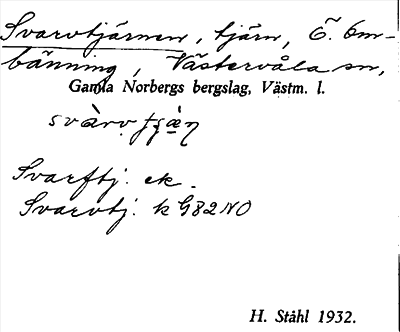 Svarvtjärnen, tjärn, Ö. Om-
bänning, Västervåla sn,
Gamla Norbergs bergslag, Västm. l.
svàrv
Svarftj. ek.
Svarvtj. k G82NO
H. Ståhl 1932.